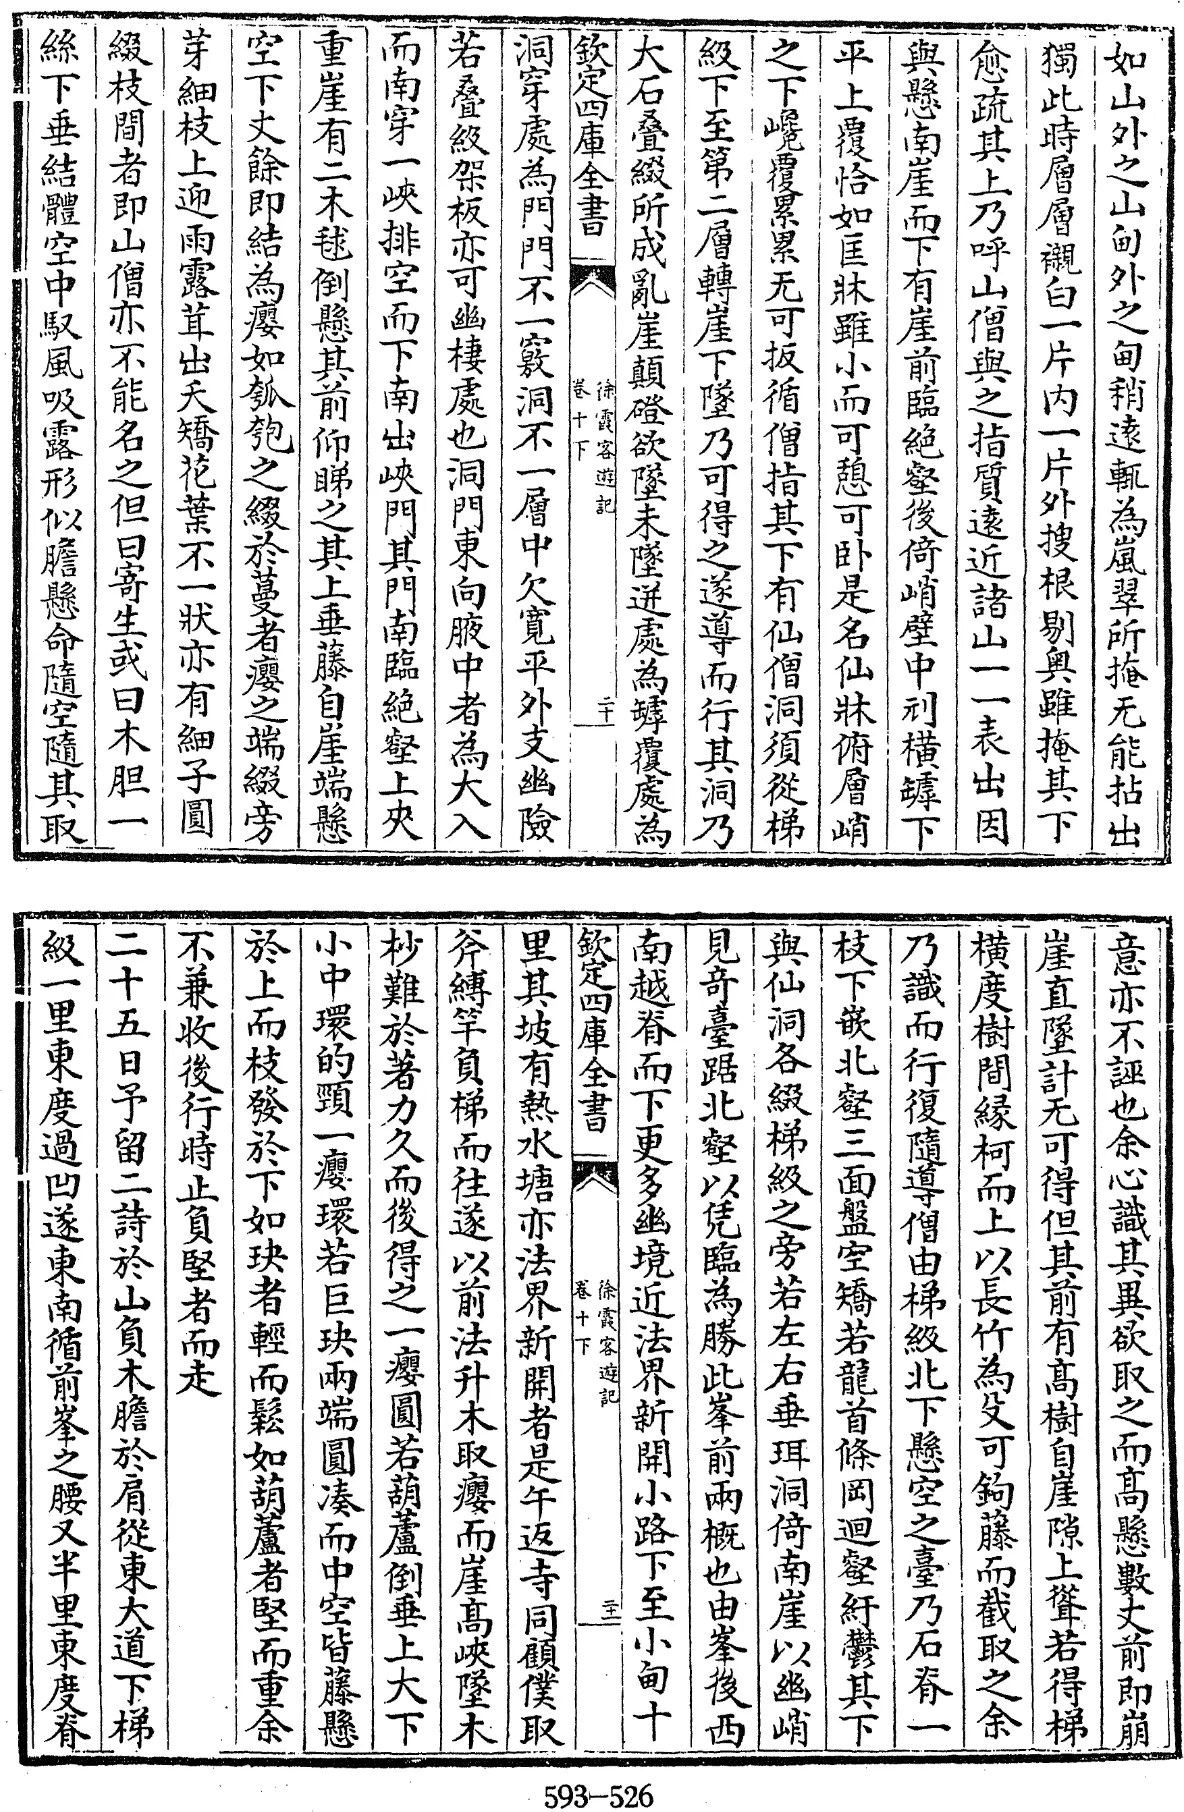 如山外之山甸外之甸稍遠輒為嵐翠所掩无能拈出
獨此時層層襯白一片内一片外搜根剔奥雖掩其下
愈疏其上乃呼山僧與之指質遠近諸山一一表出因
與懸南崖而下有崖前臨絶壑後倚峭壁中刓橫罅下
平上覆恰如匡牀雖小而可憩可卧是名仙牀俯層峭
之下巉覆累累无可扳循僧指其下有仙僧洞須從梯
級下至第二層轉崖下墜乃可得之遂導而行其洞乃
大石叠綴所成亂崖顛磴欲墜未墜迸處為罅覆處為
欽定四庫全書
徐霞客遊記
卷十下
二十
洞穿處為門門不一竅洞不一層中欠寛平外支幽險
若叠級架板亦可幽棲處也洞門東向腋中者為大入
而南穿一峽排空而下南出峽門其門南臨絶壑上夾
重崖有二木毬倒懸其前仰睇之其上垂藤自崖端懸
空下丈餘即結為癭如瓠匏之綴於蔓者癭之端綴旁
芽細枝上迎雨露茸出夭矯花葉不一狀亦有細子圓
綴枝間者即山僧亦不能名之但曰寄生或曰木胆一
絲下垂結體空中馭風吸露形似膽懸命隨空隨其取
意亦不誣也余心識其異欲取之而高懸數丈前即崩
崖直墜計无可得但其前有高樹自崖隙上聳若得梯
橫度樹間緣柯而上以長竹為殳可鉤藤而截取之余
乃識而行復隨導僧由梯級北下懸空之臺乃石脊一
枝下嵌北壑三面盤空矯若龍首條岡迴壑紆鬱其下
與仙洞各綴梯級之旁若左右垂珥洞倚南崖以幽峭
見奇臺踞北壑以凭臨為勝此峯前兩概也由峯後西
南越脊而下更多幽境近法界新開小路下至小甸十
欽定四庫全書
徐霞客遊記
卷十下
二十一
里其坡有熱水塘亦法界新開者是午返寺同顧僕取
斧縛竿負梯而往遂以前法升木取癭而崖高峽墜木
杪難於著力久而後得之一癭圓若葫蘆倒垂上大下
小中環的頸一癭環若巨玦兩端圓凑而中空皆藤懸
於上而枝發於下如玦者輕而鬆如葫蘆者堅而重余
不兼收後行時止負堅者而走
二十五日予留二詩於山負木膽於肩從東大道下梯
級一里東度過凹遂東南循前峯之腰又半里東度脊
593-526